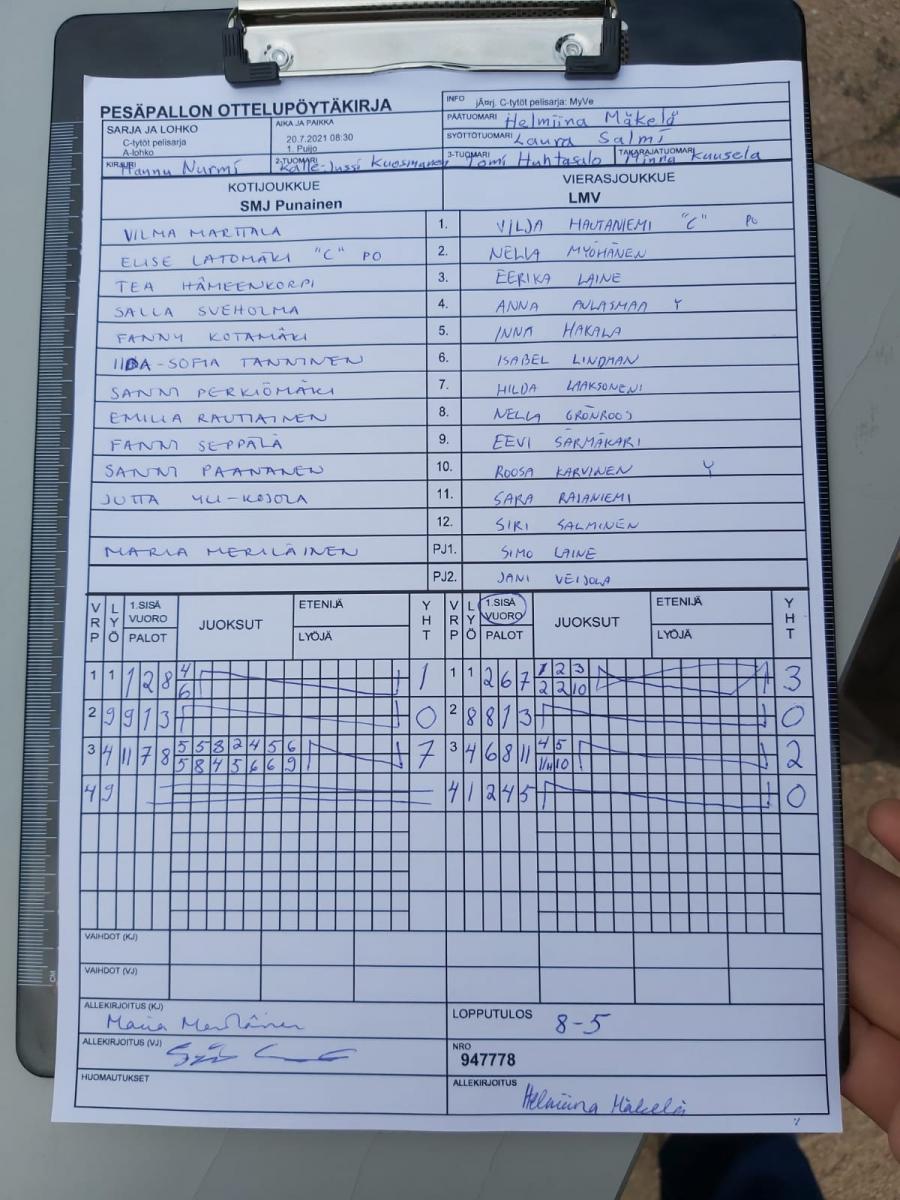 PESÄPALLON OTTELUPÖYTÄKIRJA
INFO jÃ¤rj. C-tytöt pelisarja: MyVe
SARJA JA LOHKO
C-tytöt pelisarja
A-lohko
AIKA JA PAIKKA
20.7.2021 08:30
1. Puijo
PÄÄTUOMARI Helmiina Mäkelä
SYÖTTÖTUOMARI Laura Salmi
KIRJURI Hannu Nurmi
2-TUOMARI Kalle-Jussi Kuosmanen
3-TUOMARI Tomi Huhtasalo
TAKARAJATUOMARI Minna Kuusela
KOTIJOUKKUE VIERASJOUKKUE
SMJ Punainen LMV
VILMA MARTTALA 1. VILJA HAUTANIEMI "C" PO
ELISE LATOMÄKI "C" PO 2. NELLA MYÖHÄNEN
TEA HÄMEENKORPI 3. EERIKA LAINE
SALLA SVEHOLMA 4. ANNA AULASMAA Y
FANNY KOTAMÄKI 5. INNA HAKALA
IIDA-SOFIA TANNINEN 6. ISABEL LINDMAN
SANNI PERKIÖMÄKI 7. HILDA LAAKSONEN
EMILIA RAUTIAINEN 8. NELLA GRÖNROOS
FANNI SEPPÄLÄ 9. EEVI SÄRMÄKARI
SANNI PAANANEN 10. ROOSA KARVINEN Y
JUTTA YLI-KOJOLA 11. SARA RAJANIEMI
12. SIRI SALMINEN
MARIA MERILÄINEN PJ1. SIMO LAINE
PJ2. JANI VEIJOLA
VRP LYÖ 1.SISÄ VUORO PALOT JUOKSUT ETENIJÄ LYÖJÄ YHT VRP LYÖ 1.SISÄ VUORO PALOT JUOKSUT ETENIJÄ LYÖJÄ YHT
1 1 1 2 8 4 1 1 1 2 6 7 1 2 3 3
6 2 2 10
2 9 9 1 3 0 2 8 8 1 3 0
3 4 11 7 8 5 5 8 2 4 5 6 7 3 4 6 8 11 4 5 2
5 8 4 5 6 6 9 11 10
4 9 4 1 2 4 5 0
VAIHDOT (KJ)
VAIHDOT (VJ)
ALLEKIRJOITUS (KJ) Maria Meriläinen
LOPPUTULOS 8-5
ALLEKIRJOITUS (VJ)
NRO
947778
HUOMAUTUKSET
ALLEKIRJOITUS Helmiina Mäkelä